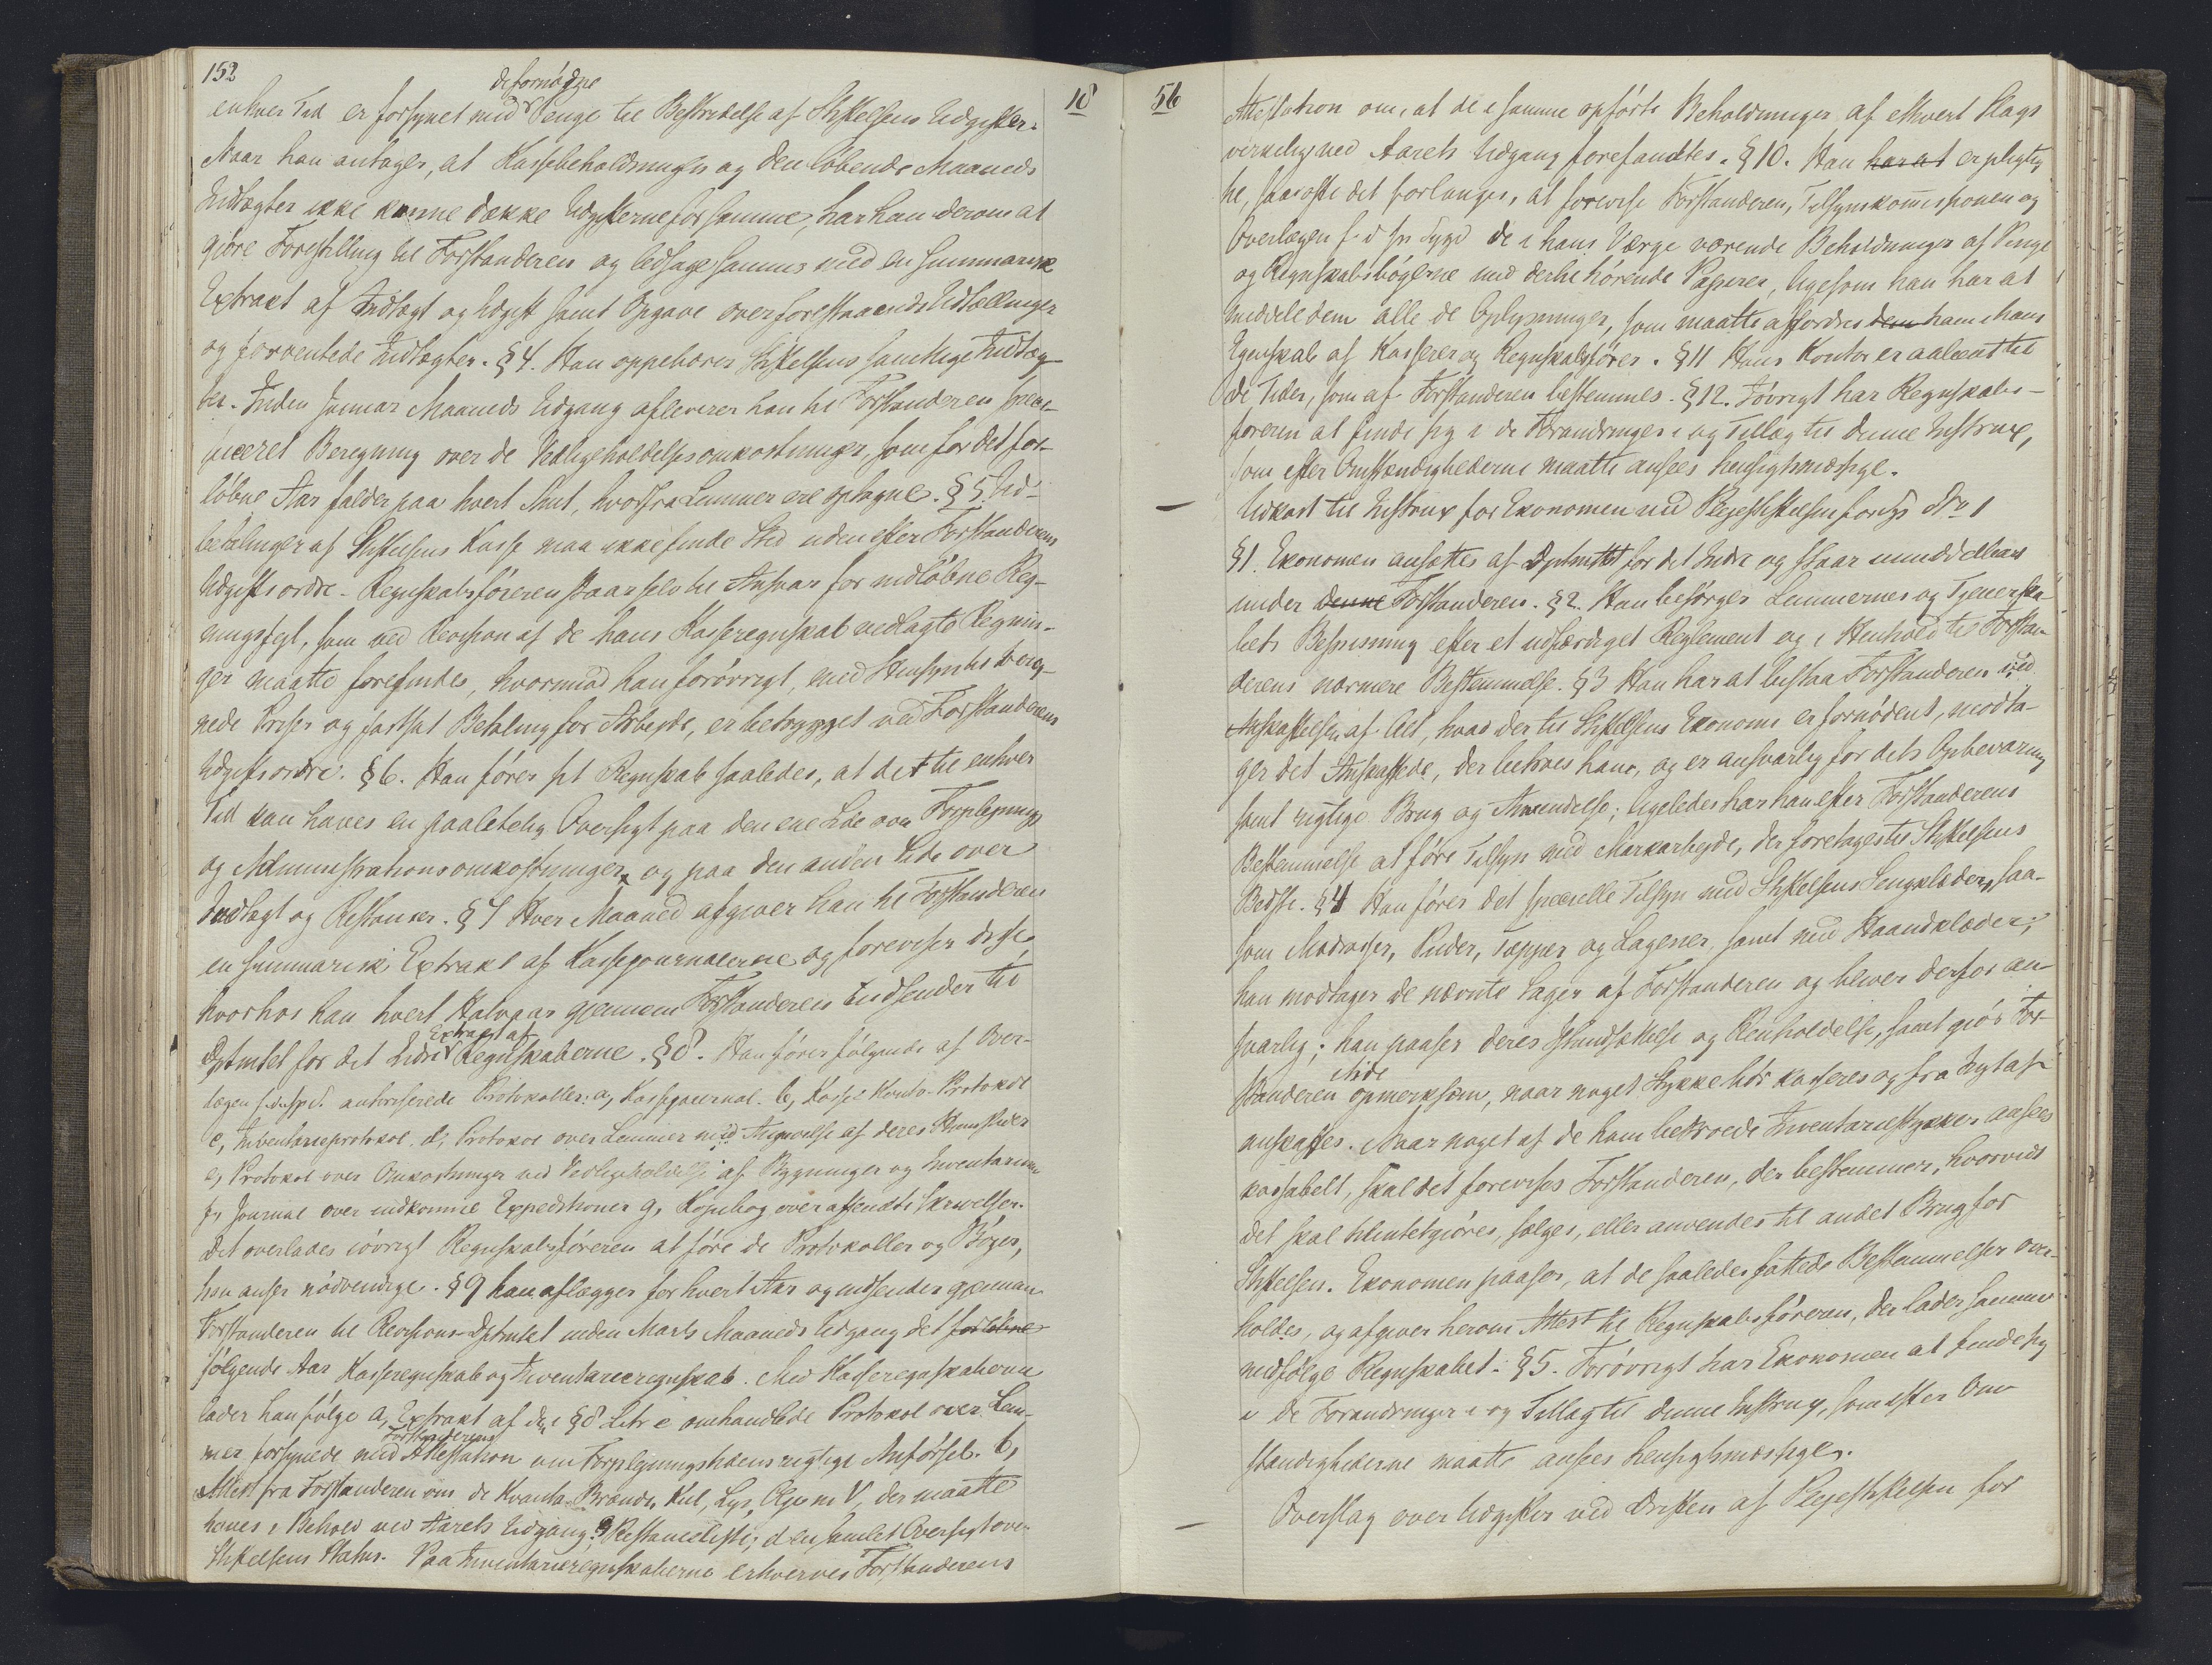 152
18
de fornødne
enhver Tid er forsynet med Penge til Bestridelse af Stiftelsens Udgifter.
Naar han antager, at Kassebeholdningen og den løbende Maaneds
Indtægter ikke kunne dække Udgifterne for samme, har han derom at
gjøre Forestilling til Forstanderen og ledsage samme med en summarisk
Extrakt af Indtægt og Udgift samt Opgave over forestaaende Udtællinger
og forventede Indtægter. § 4. Han oppebærer Stiftelsens samtlige Indtæg-
ter. Inden Januar Maaneds Udgang afleverer han til Forstanderen speci-
ficeret Beregning over de Vedligeholdelsesomkostninger, som for det for-
løbne Aar falder paa hvert Amt, hvorfra Lemmer ere optagne. § 5. Ud-
betalinger af Stiftelsens Kasse maa ikke finde Sted uden efter Forstanderens
Udgiftsordre. Regnskabsføreren staar selv til Ansvar for indløbne Reg-
ningsfejl, som ved Revision af de hans Kasseregnskab vedlagte Regnin-
ger maatte forefindes, hvorimod han forøvrigt, med Hensyn til bereg-
nede Priser og fastsat Betaling for Arbejde, er betrygget ved Forstanderens
Udgiftsordre. § 6. Han fører sit Regnskab saaledes, at det til enhver
Tid kan haves en paalidelig Oversigt paa den ene Side over Forplejnings
og Administrationsomkostninger, og paa den anden Side over
Indtægt og Restancer. § 7 Hver Maaned afgiver han til Forstanderen
en summarisk Extrakt af Kassejournalerne og foreviser disse,
hvorhos han hvert Halvaar gjennem Forstanderen indsender til
Extract af
Dptmtet for det Indre Regnskaberne. § 8. Han fører følgende af Over-
lægen f. d. sp. S. autoriserede Protokoller: a, Kassejournal. b, Kasse Konto-Protokol
c, Inventarieprotokol. d, Protokol over Lemmer med Angivelse af deres
e, Protokol over Omkostninger ved Vedligeholdelse af Bygninger og Inventarium
f, Journal over indkomne Expeditioner g, Kopibog over afsendte Skrivelser.
Det overlades iøvrigt Regnskabsføreren at føre de Protokoller og Bøger,
han anser nødvendige. § 9 han aflægger for hvert Aar og indsender gjennem
Forstanderen til Revisions-Dptmtet inden Marts Maaneds Udgang det forløbne
følgende Aar Kasseregnskab og Inventarieregnskab. Med Kasseregnskaberne
lader han følge a, Extrakt af den i § 8 Litr e omhandlede Protokol over Lem-
Forstanderens
mer forsynede med Attestation om Forplejningstidens rigtige Anførsel. b,
Attest fra Forstanderen om de Kvanta Brænde, Kul, Lys, Olje m V, der maatte
haves i Behold ved Aarets Udgang. c, Restanceliste; d en samlet Oversigt over
Stiftelsens Status. Paa Inventarieregnskaberne erhverves Forstanderens
56
Attestation om, at de i samme opførte Beholdninger af ethvert Slags
virkelig ved Aarets Udgang forefandtes. § 10. Han har at er pligtig
til, saa ofte det forlanges, at forevise Forstanderen, Tilsynskommissionen og
Overlægen f d sp Sygd de i hans Værge værende Beholdninger af Penge
og Regnskabsbøgerne med dertil hørende Papirer, ligesom han har at
meddele dem alle de Oplysninger, som maatte affordres dem ham i hans
Egenskab af Kasserer og Regnskabsfører. § 11 Hans Kontor er aabent til
de Tider, som af Forstanderen bestemmes. § 12. Iøvrigt har Regnskabs-
føreren at finde sig i de Forandringer i og Tillæg til denne Instrux,
som efter Omstændighederne maatte ansees hensigtsmæssige.
Udkast til Instrux for Ekonomen ved Plejestiftelsen for sps No 1
§ 1. Ekonomen ansættes af Dptmttet for det Indre og staar umiddelbart
under denne Forstanderen. § 2. Han besørger Lemmernes og Tjenerska-
bets Bespisning efter et udfærdiget Reglement og i Henhold til Forstan-
derens nærmere Bestemmelse. § 3 Han har at bistaa Forstanderen ved
Anskaffelsen af Alt, hvad der til Stiftelsens Ekonomi er fornødent, modta-
ger det Anskaffede, der betroes ham, og er ansvarlig for dets Opbevaring
samt rigtige Brug og Anvendelse; ligeledes har han efter Forstanderens
Bestemmelse at føre Tilsyn med Markarbejde, der foretages til Stiftelsens
Bedste. § 4 Han fører det specielle Tilsyn med Stiftelsens Sengklæder, saa-
som Madrasser, Puder, Tæpper og Lagener, samt med Haandklæder;
han modtager de nævnte Sager af Forstanderen og bliver derfor an-
svarlig; han paaser deres Istandsættelse og Renholdelse, samt gjør For-
itide
standeren opmerksom, naar noget Stykke bør kasseres og fra Nyt af
anskaffes. Naar noget af de ham betroede Inventariestykker ansees
kassabelt, skal det forevises Forstanderen, der bestemmer, hvorvidt
det skal tilintetgjøres, sælges, eller anvendes til andet Brug for
Stiftelsen. Ekonomen paaser, at de saaledes fattede Bestemmelser over-
holdes, og afgiver herom Attest til Regnskabsføreren, der lader samme
medfølge Regnskabet. § 5. Forøvrigt har Ekonomen at finde sig
i de Forandringer i og Tillæg til denne Instrux, som efter Om-
stændighederne maatte ansees hensigtsmæssige.
Overslag over Udgifter ved Driften af Plejestiftelsen for